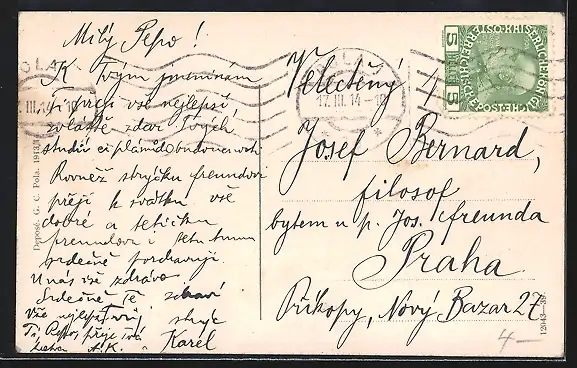 Milý Pepo!
K Tvým jmeninám
Ti přeji vše nejlepší
zvláště zdar Tvých
studií či plánů budoucnosti
Rovněž strýčku freundovi
přeji k svátku vše
dobré a tetičku
freundovi i
srdečně pozdravuji
U nás vše zdrávo.
Srdečně Tě zdraví
strýc
Karel
Vše nejlepší
Ti Pepo přeje
A. K.
POLA 1
17. III. 14
Velectěný
Josef Bernard,
filosof
bytem u p. Jos. freunda
Praha
Příkopy, Nový Bazar 27
5 HELLER 5
Deposé. G. C. Pola. 1913/1
4—